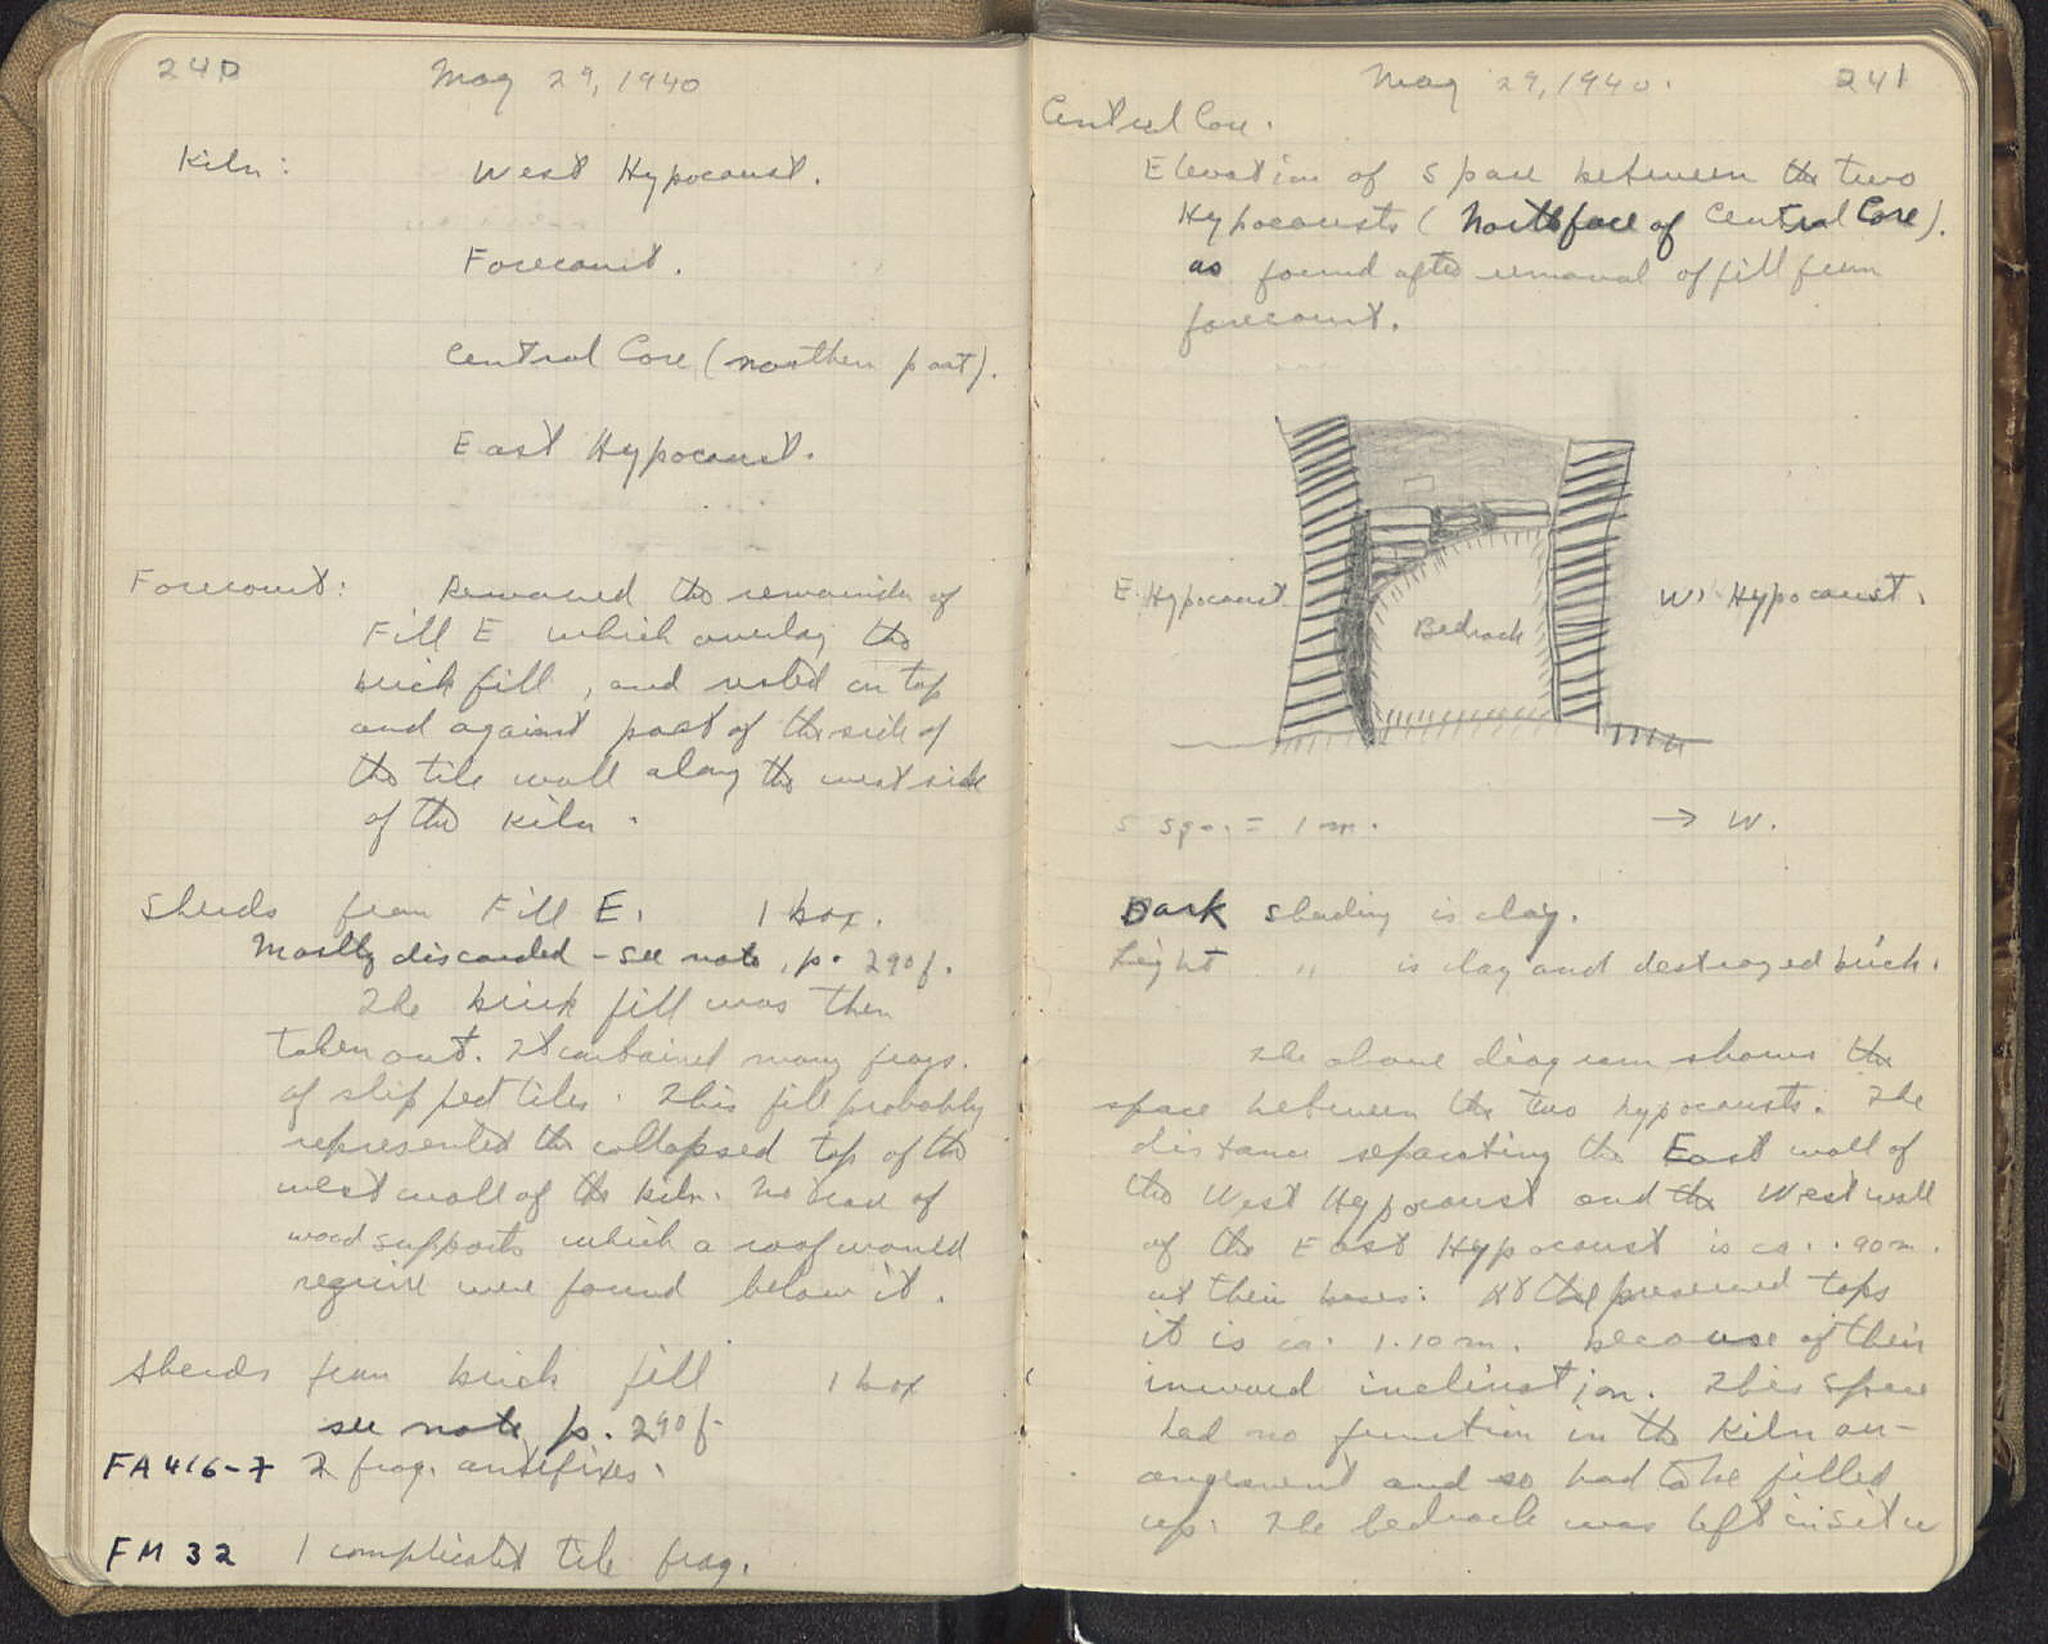 240 May 29, 1940
Kiln: West Hypocaust.
Forecourt.
Central Core (northern part).
East Hypocaust.
Forecourt: Removed the remainder of
Fill E which overlay the
brick fill, and rested on top
and against part of the side of
the tile wall along the west side
of the kiln.
Sherds from Fill E. 1 box.
Mostly discarded - see note, p. 290f.
The brick fill was then
taken out. It contained many frags.
of slipped tiles. This fill probably
represented the collapsed top of the
west wall of the kiln. No trace of
wood supports which a roof would
require were found below it.
Sherds from brick fill 1 box
see note p. 290f.
FA 416-7 2 frag. antefixes.
FM 32 1 complicated tile frag.
May 29, 1940. 241
Central Core.
Elevation of space between the two
Hypocausts (North face of Central Core).
as found after removal of fill from
forecourt.
E. Hypocaust
Bedrock
W. Hypocaust.
5 sqs. = 1 m. → W.
Dark shading is clay.
Light " is clay and destroyed brick.
The above diagram shows the
space between the two hypocausts. The
distance separating the East wall of
the West Hypocaust and the West wall
of the East Hypocaust is ca. .90 m.
at their bases. At the preserved tops
it is ca. 1.10 m. because of their
inward inclination. This space
had no function in the kiln arr-
angement and so had to be filled
up. The bedrock was left in situ